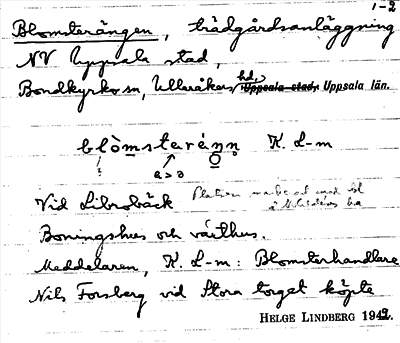 1-2
Blomsterängen, trädgårdsanläggning
NV Uppsala stad,
Bondkyrko sn, Ulleråkers hd, Uppsala stad, Uppsala län.
blòmsterénn K. L-m
a > ɔ
Vid Librobäck Platsen
Boningshus och växthus.
Meddelaren, K. L-m: Blomsterhandlare
Nils Forsberg vid Stora torget köpte
HELGE LINDBERG 1942.